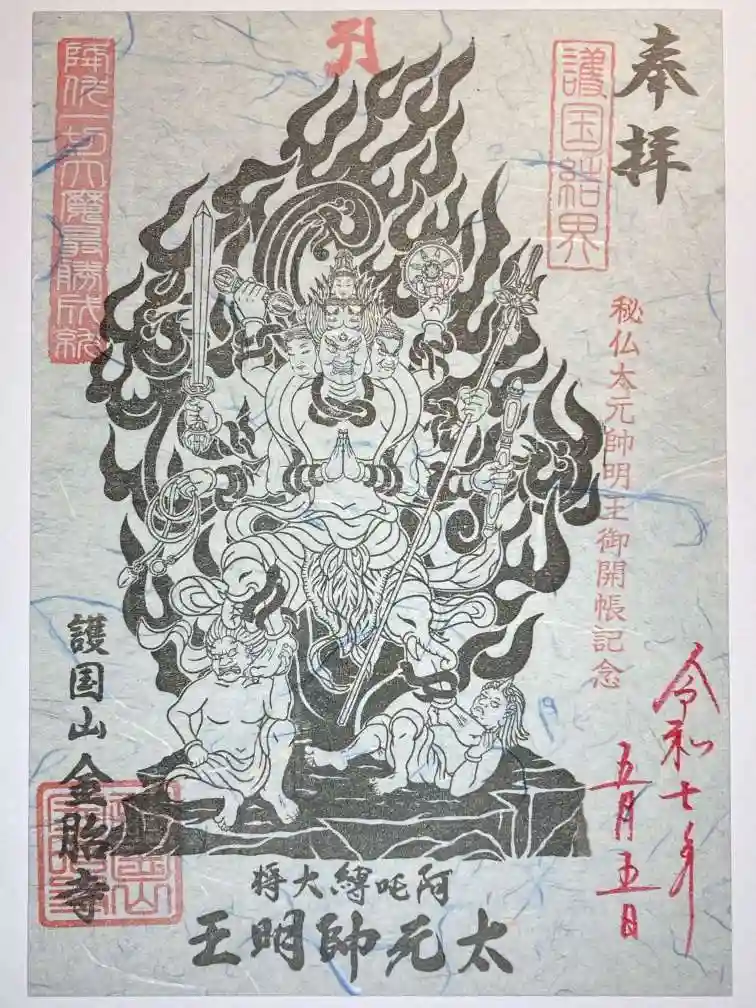 奉拝
護国結界
秘仏太元帥明王御開帳記念
令和七年
五月五日
降伏一切六魔最勝成就
阿吒縛大将
太元帥明王
護国山 金胎寺